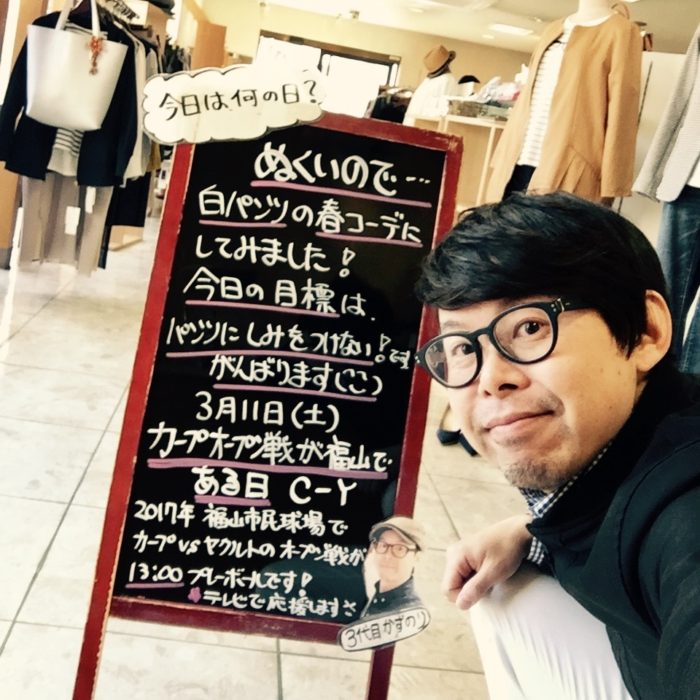 今日は、何の日?
ぬくいので…
白パンツの春コーデに
してみました!
今日の目標は、
パンツにしみをつけない!です
がんばります(ﾆｺ)
3月11日(土)
カープオープン戦が福山で
ある日 C-Y
2017年 福山市民球場で
カープvsヤクルトのオープン戦が
13:00 プレーボールです!
テレビで応援します
3代目かずのり